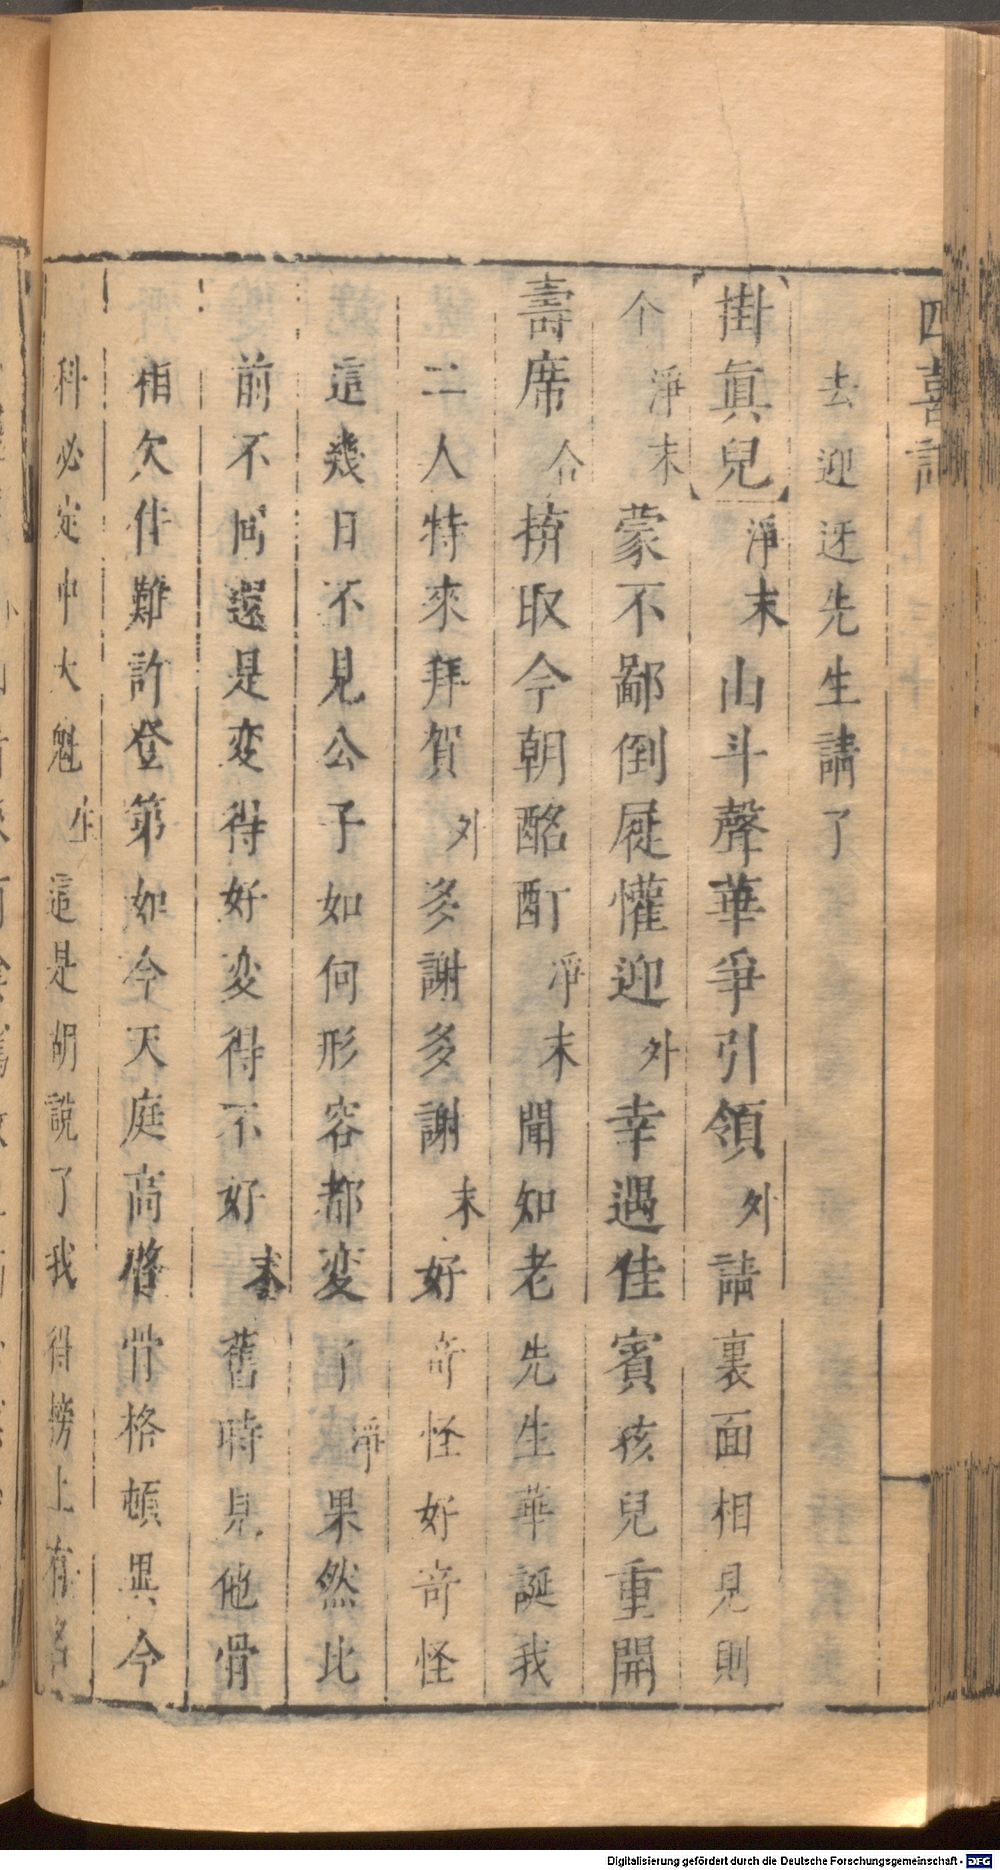 四喜記
去迎迓先生請了
掛眞兒 淨末 山斗聲華爭引領 外 請裏面相見則
个 淨末 蒙不鄙倒屣懽迎 外 幸遇佳賓孩兒重開
壽席 介 拚取今朝酩酊 淨末 聞知老先生華誕我
二人特來拜賀 外 多謝多謝 末 好奇怪好奇怪
這幾日不見公子如何形容都変了 淨 果然比
前不同還是変得好変得不好 末 舊時見他骨
相欠佳難許登第如今天庭高聳骨格頓異今
科必定中大魁 生 這是胡說了我得榜上有名
Digitalisierung gefördert durch die Deutsche Forschungsgemeinschaft - DFG